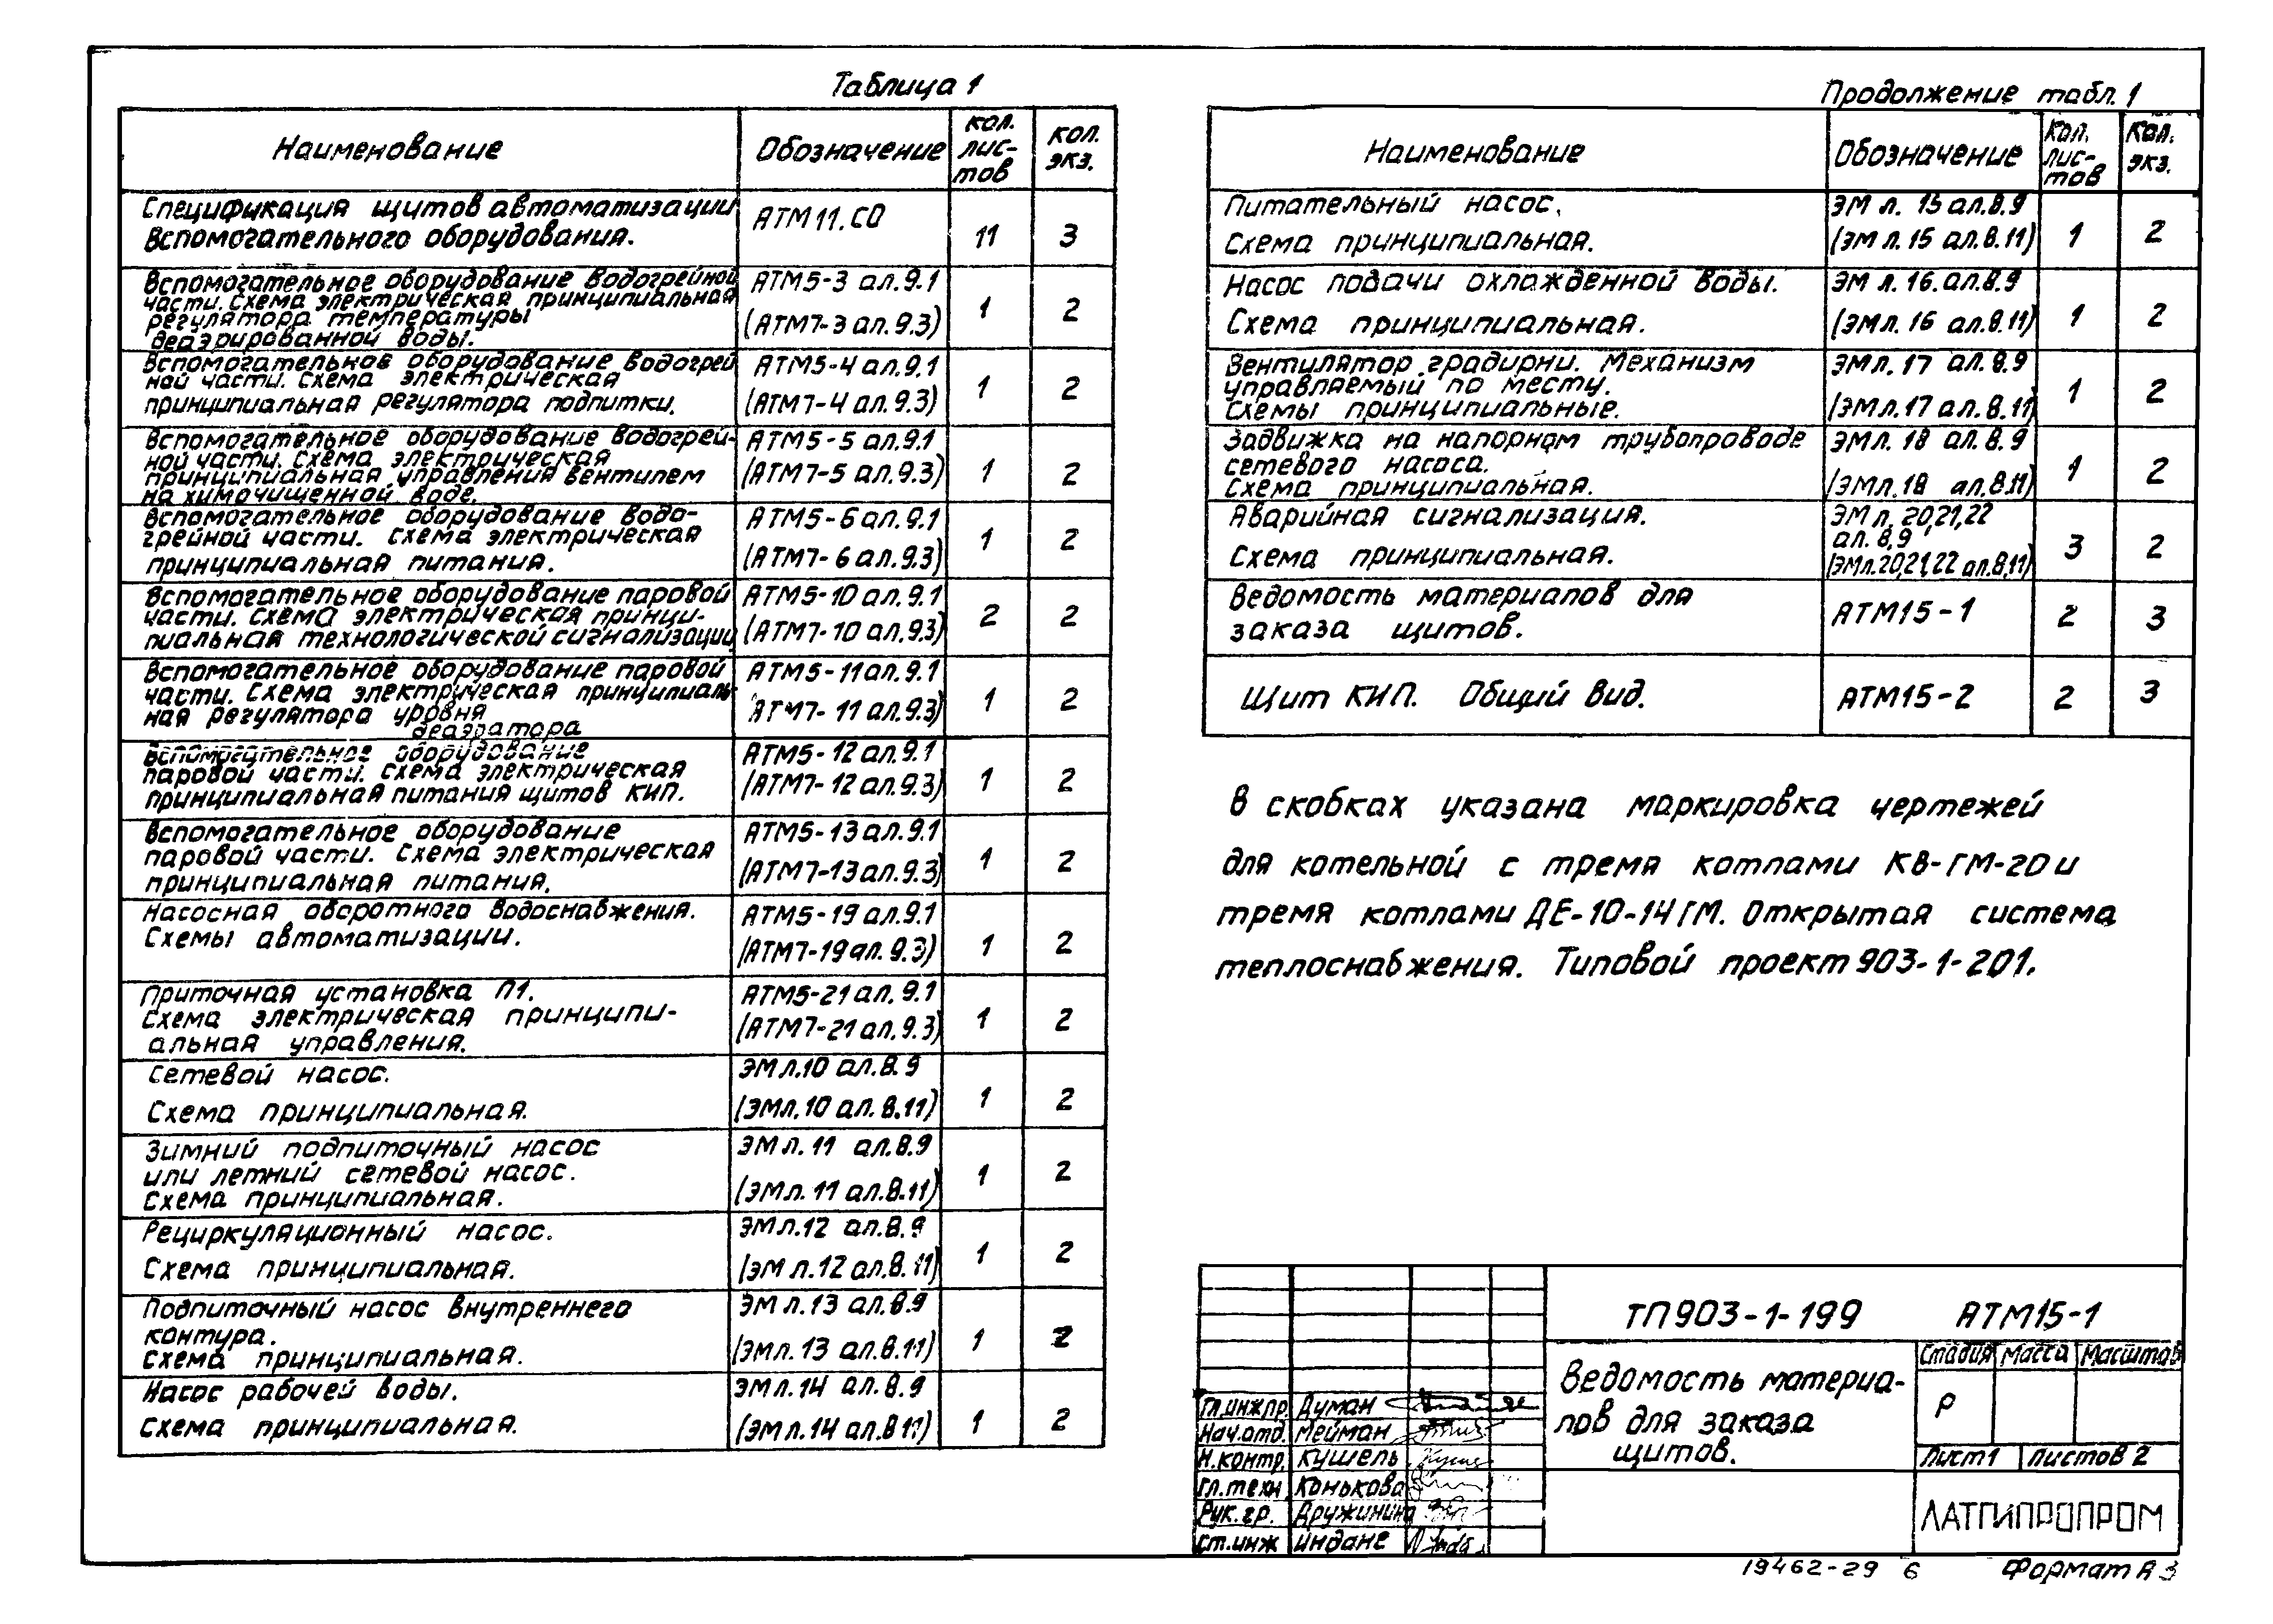 Таблица 1
Наименование
Обозначение
кол.
лис-
тов
кол.
экз.
Спецификация щитов автоматизации
вспомогательного оборудования.
АТМ 11. СО
11
3
Вспомогательное оборудование водогрейной
части. Схема электрическая принципиальная
регулятора температуры
деаэрированной воды.
АТМ5-3 ал.9.1
(АТМ7-3 ал.9.3)
1
2
Вспомогательное оборудование водогрей
ной части. Схема электрическая
принципиальная регулятора подпитки.
АТМ5-4 ал.9.1
(АТМ7-4 ал.9.3)
1
2
Вспомогательное оборудование водогрей-
ной части. Схема электрическая
принципиальная управления вентилем
на химочищенной воде.
АТМ5-5 ал.9.1
(АТМ7-5 ал.9.3)
1
2
Вспомогательное оборудование водо-
грейной части. Схема электрическая
принципиальная питания.
АТМ5-6 ал.9.1
(АТМ7-6 ал.9.3)
1
2
Вспомогательное оборудование паровой
части. Схема электрическая принци-
пиальная технологической сигнализации
АТМ5-10 ал.9.1
(АТМ7-10 ал.9.3)
2
2
Вспомогательное оборудование паровой
части. Схема электрическая принципиаль-
ная регулятора уровня
деаэратора
АТМ5-11 ал.9.1
АТМ7-11 ал.9.3)
1
2
Вспомогательное оборудование
паровой части. Схема электрическая
принципиальная питания щитов КИП.
АТМ5-12 ал.9.1
(АТМ7-12 ал.9.3)
1
2
Вспомогательное оборудование
паровой части. Схема электрическая
принципиальная питания.
АТМ5-13 ал.9.1
(АТМ7-13 ал.9.3)
1
2
Насосная оборотного водоснабжения.
Схемы автоматизации.
АТМ5-19 ал.9.1
(АТМ7-19 ал.9.3)
1
2
Приточная установка П1.
Схема электрическая принципи-
альная управления.
АТМ5-21 ал.9.1
(АТМ7-21 ал.9.3)
1
2
Сетевой насос.
Схема принципиальная.
ЭМ л.10 ал.8.9
(ЭМ л.10 ал.8.11)
1
2
Зимний подпиточный насос
или летний сетевой насос.
Схема принципиальная.
ЭМ л.11 ал.8.9
(ЭМ л.11 ал.8.11)
1
2
Рециркуляционный насос.
Схема принципиальная.
ЭМ л.12 ал.8.9
(ЭМ л.12 ал.8.11)
1
2
Подпиточный насос внутреннего
контура.
Схема принципиальная.
ЭМ л.13 ал.8.9
(ЭМ л.13 ал.8.11)
1
2
Насос рабочей воды.
Схема принципиальная.
ЭМ л.14 ал.8.9
(ЭМ л.14 ал.8 11)
1
2
Продолжение табл. 1
Наименование
Обозначение
Кол.
лис-
тов
Кол.
экз.
Питательный насос.
Схема принципиальная.
ЭМ л. 15 ал.8.9
(ЭМ л.15 ал.8.11)
1
2
Насос подачи охлажденной воды.
Схема принципиальная.
ЭМ л.16. ал.8.9
(ЭМ л.16 ал.8.11)
1
2
Вентилятор градирни. Механизм
управляемый по месту.
Схемы принципиальные.
ЭМ л.17 ал.8.9
(ЭМ л.17 ал.8.11
1
2
Задвижка на напорном трубопроводе
сетевого насоса.
Схема принципиальная.
ЭМ л. 18 ал. 8. 9
(ЭМ л.18 ал.8.11)
1
2
Аварийная сигнализация.
Схема принципиальная.
ЭМ л. 20,21,22
ал. 8.9
(ЭМ л.20,21,22 ал.8.11)
3
2
Ведомость материалов для
заказа щитов.
АТМ15-1
2
3
Щит КИП. Общий вид.
АТМ15-2
2
3
В скобках указана маркировка чертежей
для котельной с тремя котлами КВ-ГМ-20 и
тремя котлами ДЕ-10-14ГМ. Открытая система
теплоснабжения. Типовой проект 903-1-201.
ТП 903-1-199 АТМ15-1
Ведомость материа-
лов для заказа
щитов.
Стадия Масса Масштаб
Р
Лист 1 Листов 2
ЛАТГИПРОПРОМ
Гл.инж.пр. Думан
Нач.отд. Мейман
Н.контр. Кушель
Гл.техн. Конькова
Рук.гр. Дружинина
Ст.инж Индане
19462-29 6 Формат А3